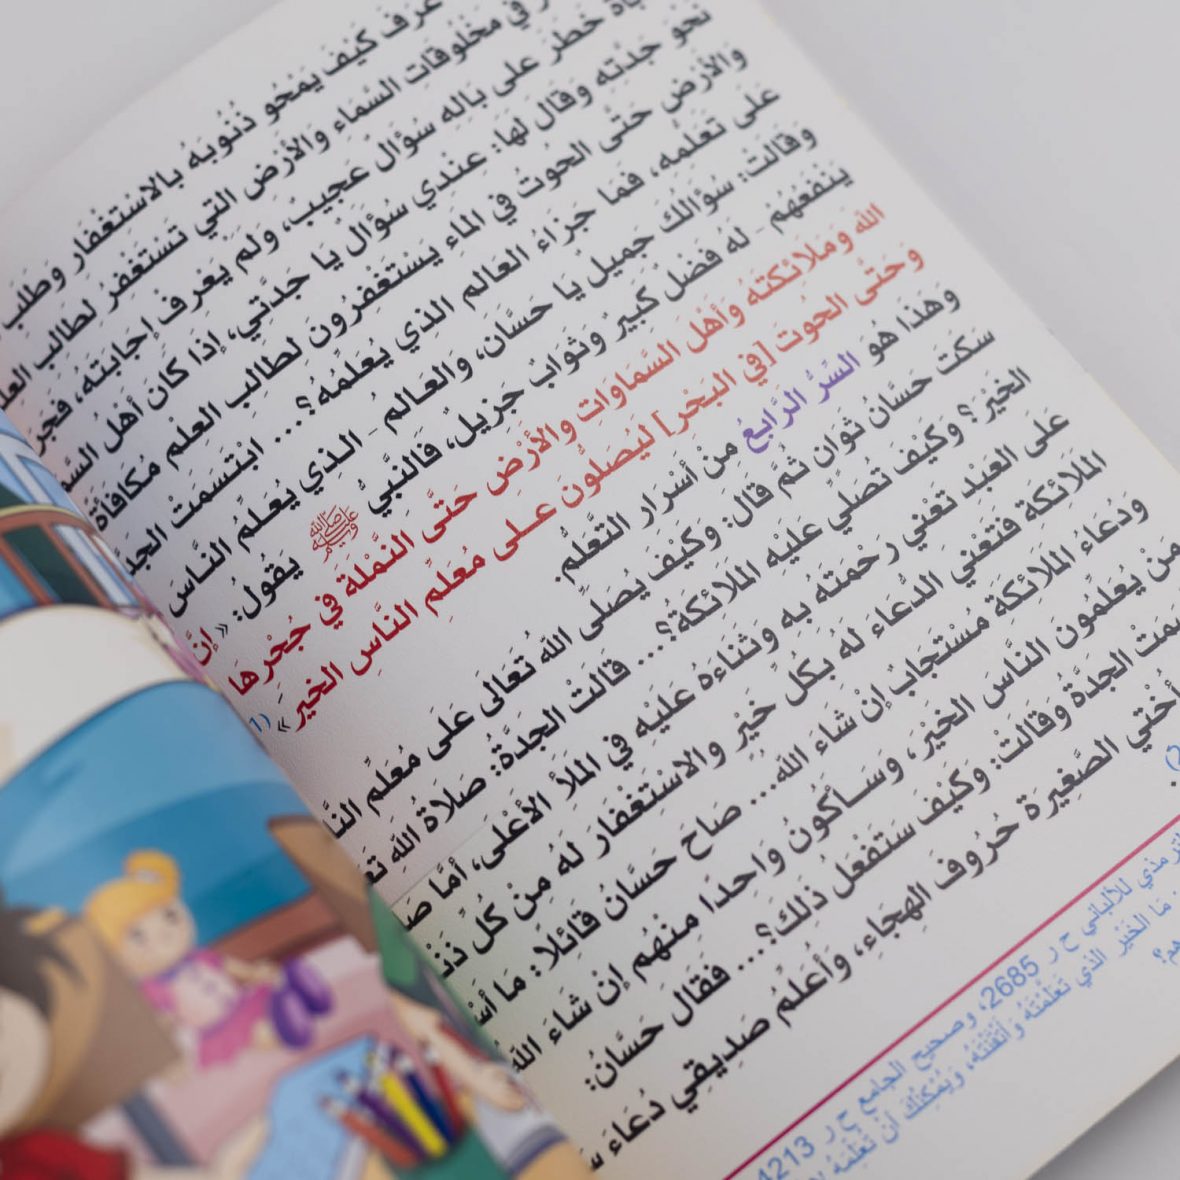 عَرَفَ كَيْفَ يَمْحُو ذُنُوبَهُ بِالاسْتِغْفَارِ وَطَلَبِ
فِي مَخْلُوقَاتِ السَّمَاءِ وَالأَرْضِ الَّتِي تَسْتَغْفِرُ لِطَالِبِ
خَطَرَ عَلَى بَالِهِ سُؤَالٌ عَجِيبٌ، وَلَمْ يَعْرِفْ إِجَابَتَهُ، فَجَرَى
نَحْوَ جَدَّتِهِ وَقَالَ لَهَا: عِنْدِي سُؤَالٌ يَا جَدَّتِي، إِذَا كَانَ أَهْلُ
وَالأَرْضِ حَتَّى الحُوتُ فِي المَاءِ يَسْتَغْفِرُونَ لِطَالِبِ العِلْمِ مُكَافَأَةً
عَلَى تَعَلُّمِهِ، فَمَا جَزَاءُ العَالِمِ الَّذِي يُعَلِّمُهُ؟... ابْتَسَمَتْ
وَقَالَتْ: سُؤَالُكَ جَمِيلٌ يَا حَسَّان، وَالعَالِمُ - الَّذِي يُعَلِّمُ النَّاسَ
يَنْفَعُهُمْ - لَهُ فَضْلٌ كَبِيرٌ وَثَوَابٌ جَزِيلٌ، فَالنَّبِيُّ ﷺ يَقُولُ: « إِنَّ
اللهَ وَمَلَائِكَتَهُ وَأَهْلَ السَّمَاوَاتِ وَالأَرْضِ حَتَّى النَّمْلَةَ فِي جُحْرِهَا
وَحَتَّى الحُوتَ [فِي البَحْرِ] لَيُصَلُّونَ عَلَى مُعَلِّمِ النَّاسِ الخَيْرِ»
وَهَذَا هُوَ السِّرُّ الرَّابِعُ مِنْ أَسْرَارِ التَّعَلُّمِ.
سَكَتَ حَسَّانُ ثَوَانٍ ثُمَّ قَالَ: وَكَيْفَ يُصَلِّي اللهُ تَعَالَى عَلَى مُعَلِّمِ
الخَيْرَ؟ وَكَيْفَ تُصَلِّي عَلَيْهِ المَلَائِكَةُ؟... قَالَتْ الجَدَّةُ: صَلَاةُ اللهِ
عَلَى العَبْدِ تَعْنِي رَحْمَتَهُ بِهِ وَثَنَاءَهُ عَلَيْهِ فِي المَلَأِ الأَعْلَى، أَمَّا
المَلَائِكَةِ فَتَعْنِي الدُّعَاءَ لَهُ بِكُلِّ خَيْرٍ وَالاسْتِغْفَارَ لَهُ مِنْ كُلِّ
وَدُعَاءُ المَلَائِكَةِ مُسْتَجَابٌ إِنْ شَاءَ اللهُ... صَاحَ حَسَّانُ قَائِلًا: مَا
مَنْ يُعَلِّمُونَ النَّاسَ الخَيْرَ، وَسَأَكُونُ وَاحِدًا مِنْهُم إِنْ شَاءَ اللهُ
الجَدَّةُ وَقَالَتْ: وَكَيْفَ سَتَفْعَلُ ذَلِكَ؟... فَقَالَ حَسَّانُ:
أُخْتِي الصَّغِيرَةَ حُرُوفَ الهِجَاءِ، وَأُعَلِّمُ صَدِيقِي دُعَاءَ
للألباني ح ر 2685، وصحيح الجامع ح ر 4213
مَا الخَيْرُ الَّذِي تَعَلَّمْتَهُ وَأَتْقَنْتَهُ، وَيُمْكِنُكَ أَنْ تُعَلِّمَهُ